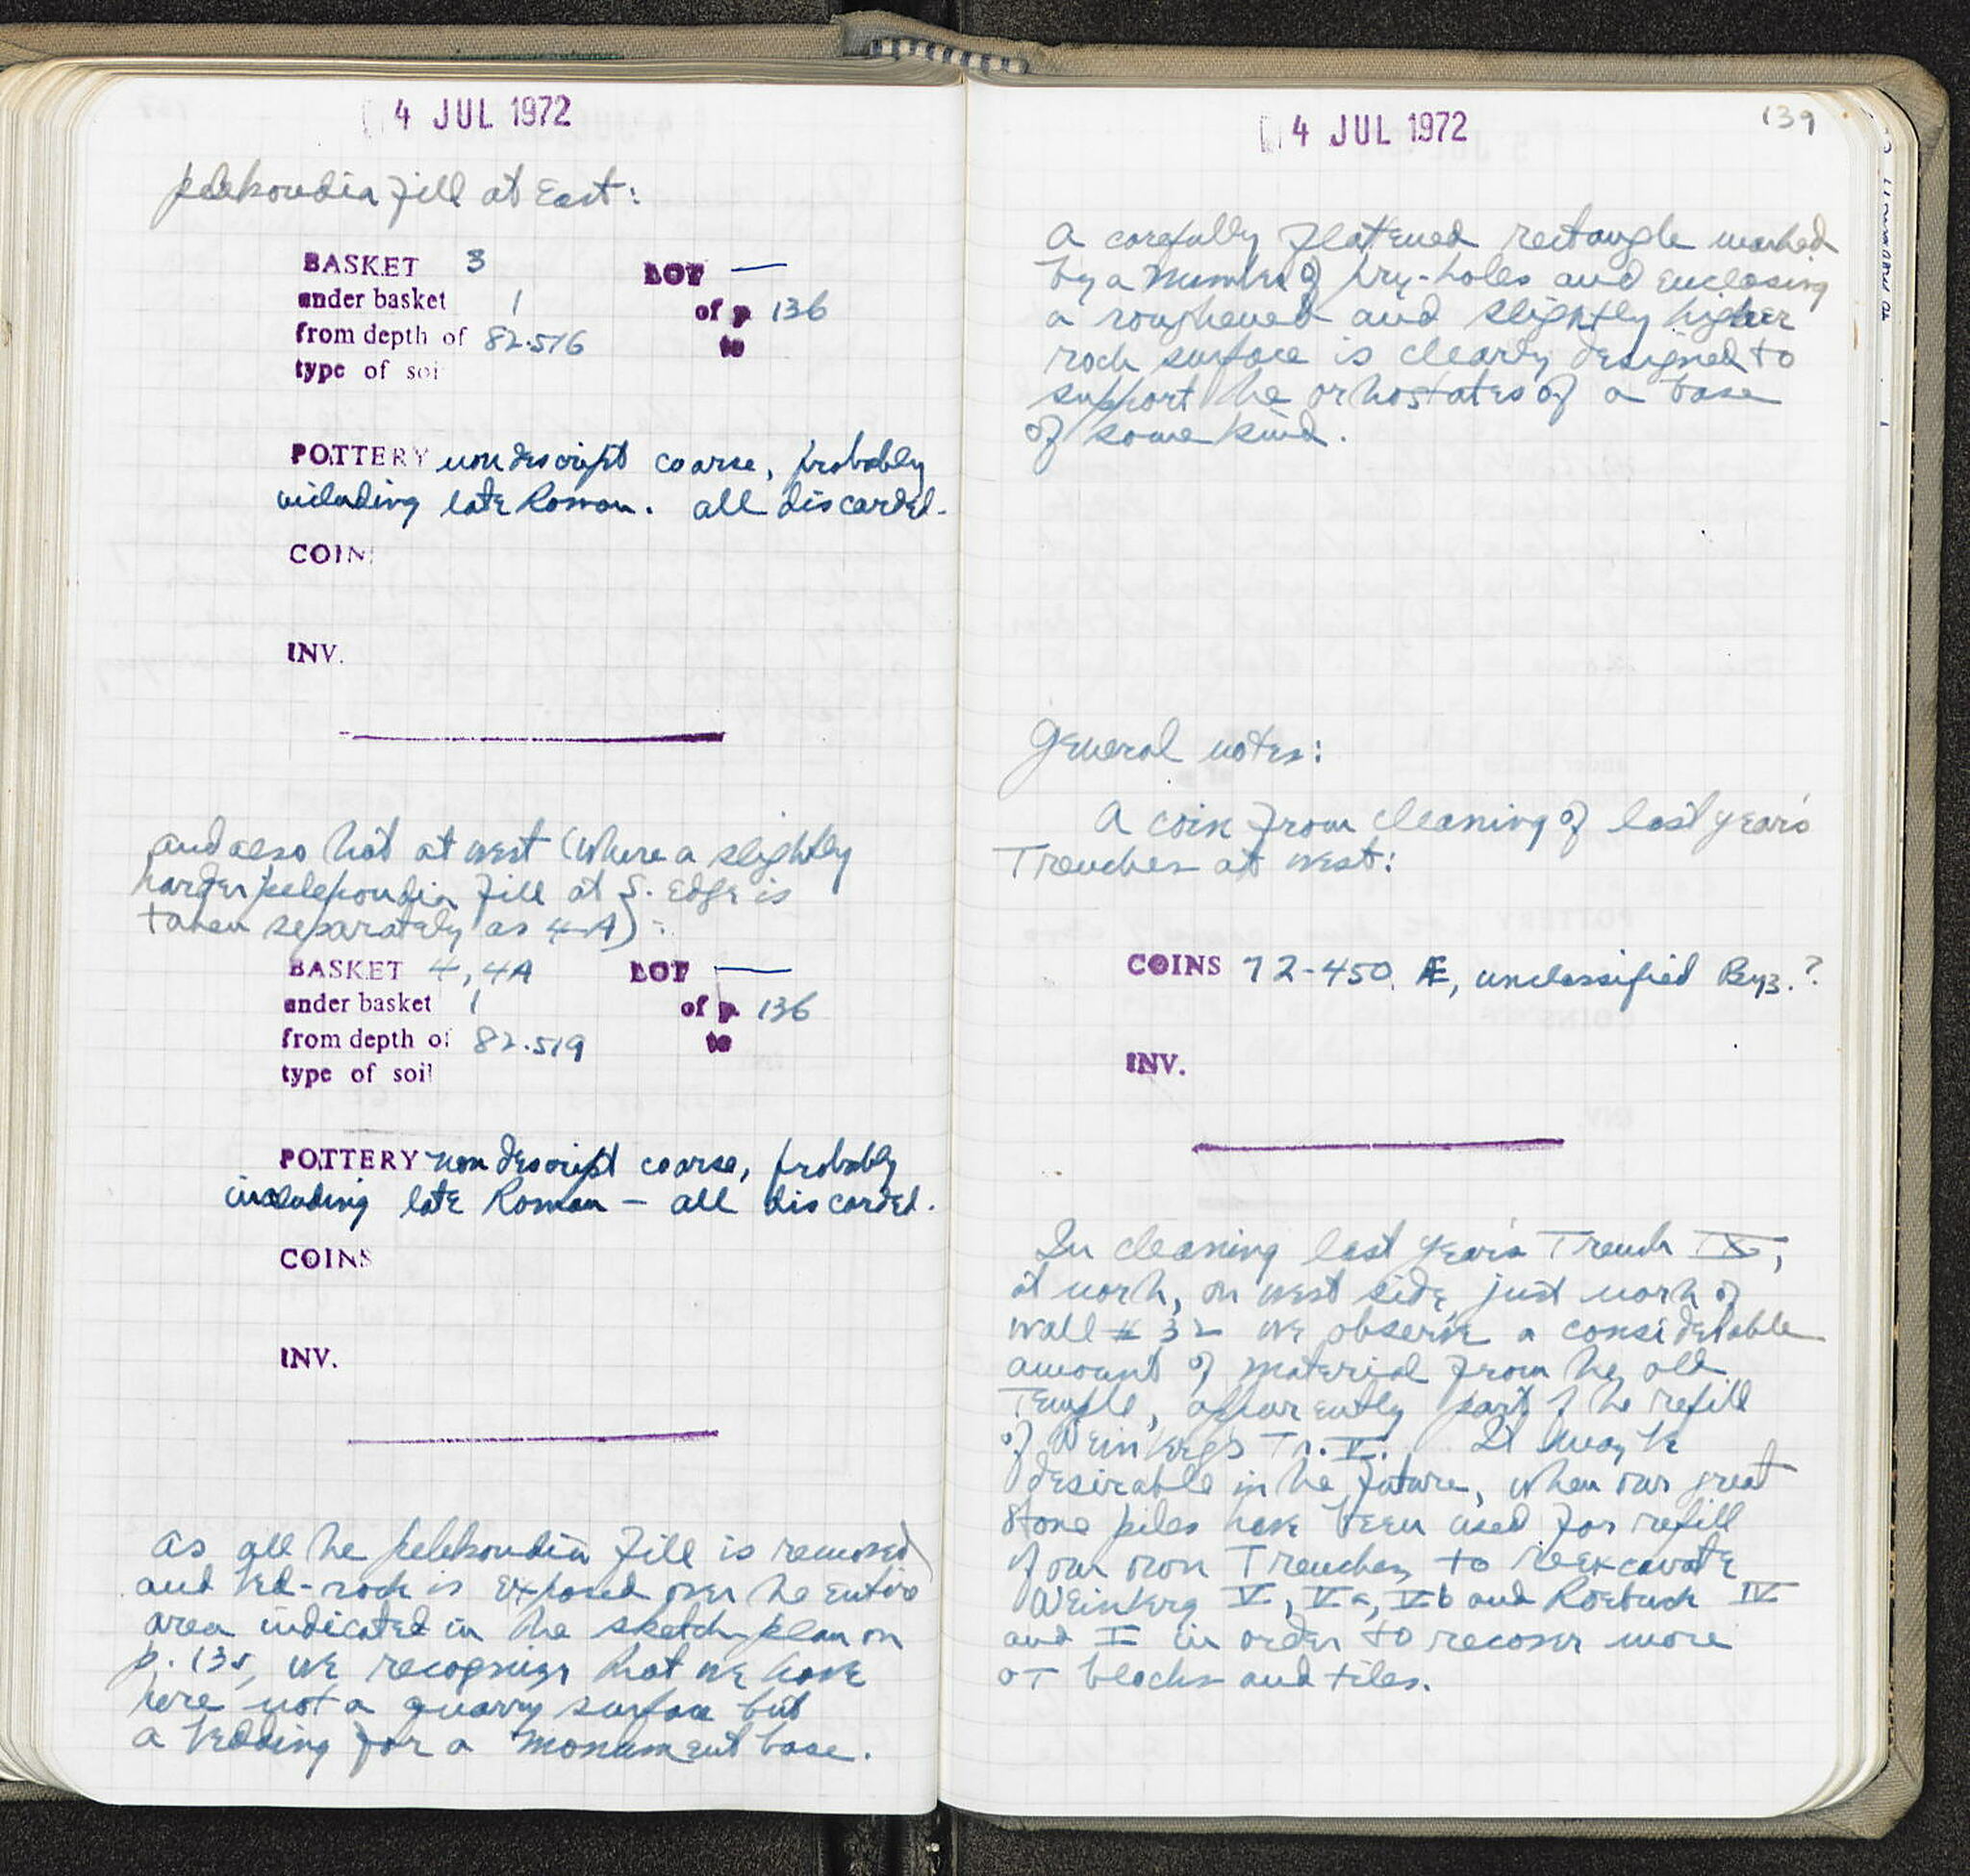 4 JUL 1972
pelekoudia fill at East:
BASKET 3 LOT —
under basket 1 of p. 136
from depth of 82.576 to
type of soi
POTTERY nondescript coarse, probably
including late Roman. all discarded.
COIN
INV.
and also that at west (where a slightly
harder pelekoudia fill at S. Edge is
taken separately as 4A):
BASKET 4, 4A LOT —
under basket 1 of p. 136
from depth of 82.519 to
type of soil
POTTERY nondescript coarse, probably
including late Roman — all discarded.
COINS
INV.
As all the pelekoudia fill is removed
and bed-rock is exposed over the entire
area indicated in the sketch plan on
p. 135, we recognize that we have
here not a quarry surface but
a bedding for a monument base.
4 JUL 1972
139
A carefully flattened rectangle marked
by a number of pry-holes and enclosing
a roughened and slightly higher
rock surface is clearly designed to
support the orthostates of a base
of some kind.
General notes:
A coin from cleaning of last year's
Trenches at west:
COINS 72-450. Æ, unclassified Byz.?
INV.
In cleaning last year's Trench IX,
at north, on west side, just north of
wall # 32 we observe a considerable
amount of material from the old
Temple, apparently part of the refill
of Weinberg's Tr. V. It may be
desirable in the future, when our great
stone piles have been used for refill
of our own Trenches, to reexcavate
Weinberg V, Va, Vb and Roebuck IV
and I in order to recover more
OT blocks and tiles.